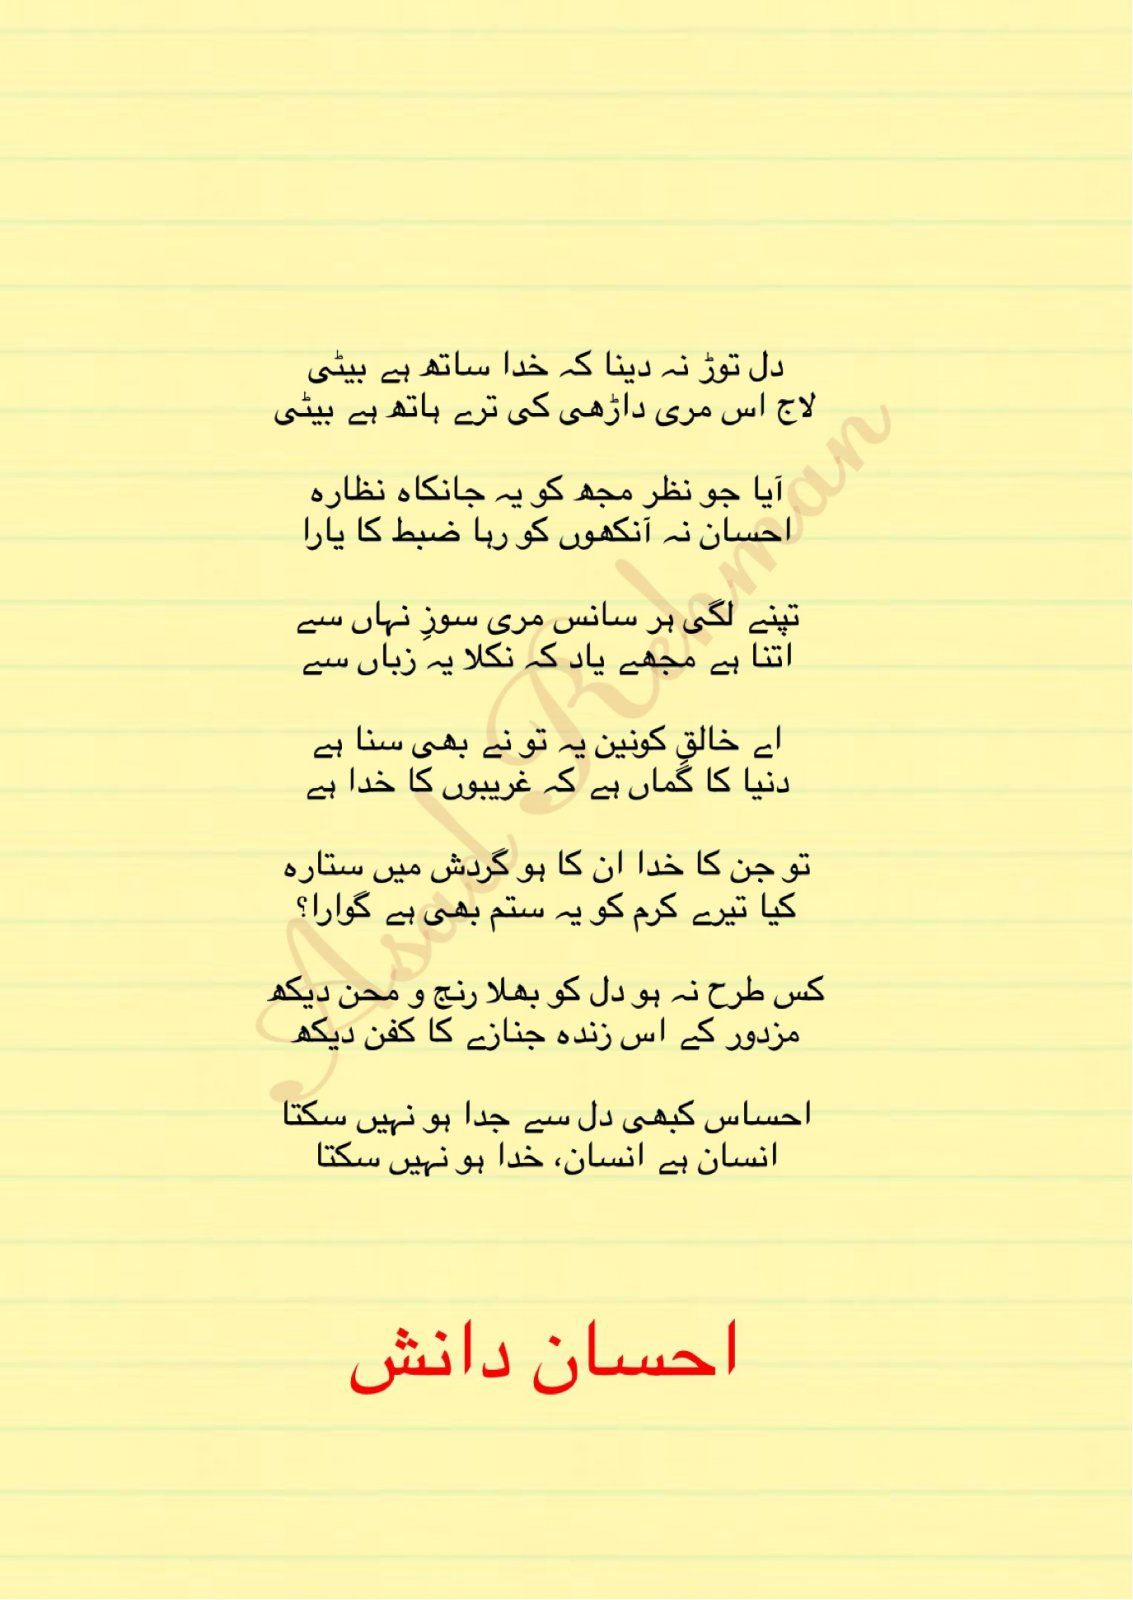 دل توڑ نہ دینا کہ خدا ساتھ ہے بیٹی
لاج اس مری داڑھی کی ترے ہاتھ ہے بیٹی
آیا جو نظر مجھ کو یہ جانکاہ نظارہ
احسان نہ آنکھوں کو رہا ضبط کا یارا
تپنے لگی ہر سانس مری سوزِ نہاں سے
اتنا ہے مجھے یاد کہ نکلا یہ زباں سے
اے خالقِ کونین یہ تو نے بھی سنا ہے
دنیا کا گماں ہے کہ غریبوں کا خدا ہے
تو جن کا خدا ان کا ہو گردش میں ستارہ
کیا تیرے کرم کو یہ ستم بھی ہے گوارا؟
کس طرح نہ ہو دل کو بھلا رنج و محن دیکھ
مزدور کے اس زندہ جنازے کا کفن دیکھ
احساس کبھی دل سے جدا ہو نہیں سکتا
انسان ہے انسان، خدا ہو نہیں سکتا
احسان دانش
Asad Rehman